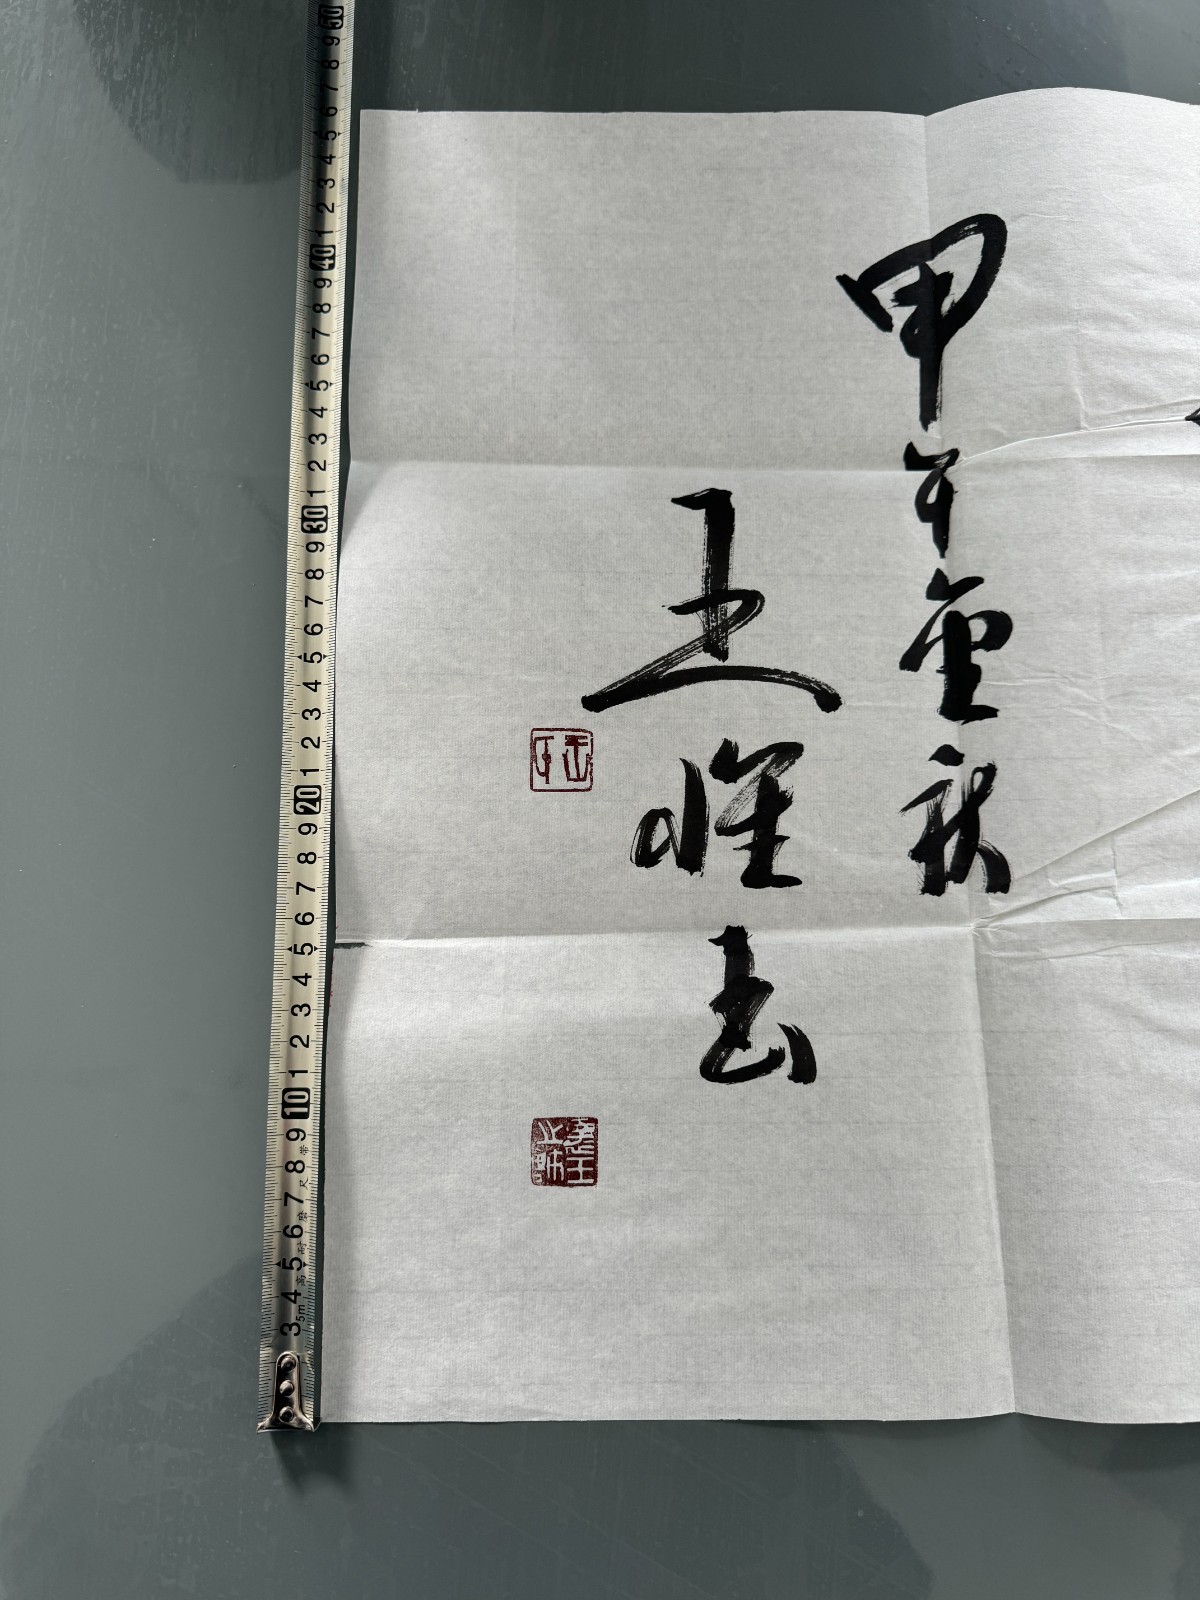 甲午金秋
王惟書
3 4 5 6 7 8 9 10 1 2 3 4 5 6 7 8 9 20 1 2 3 4 5 6 7 8 9 30 1 2 3 4 5 6 7 8 9 40 1 2 3 4 5 6 7 8 9 50
5m 高耐磨尺带